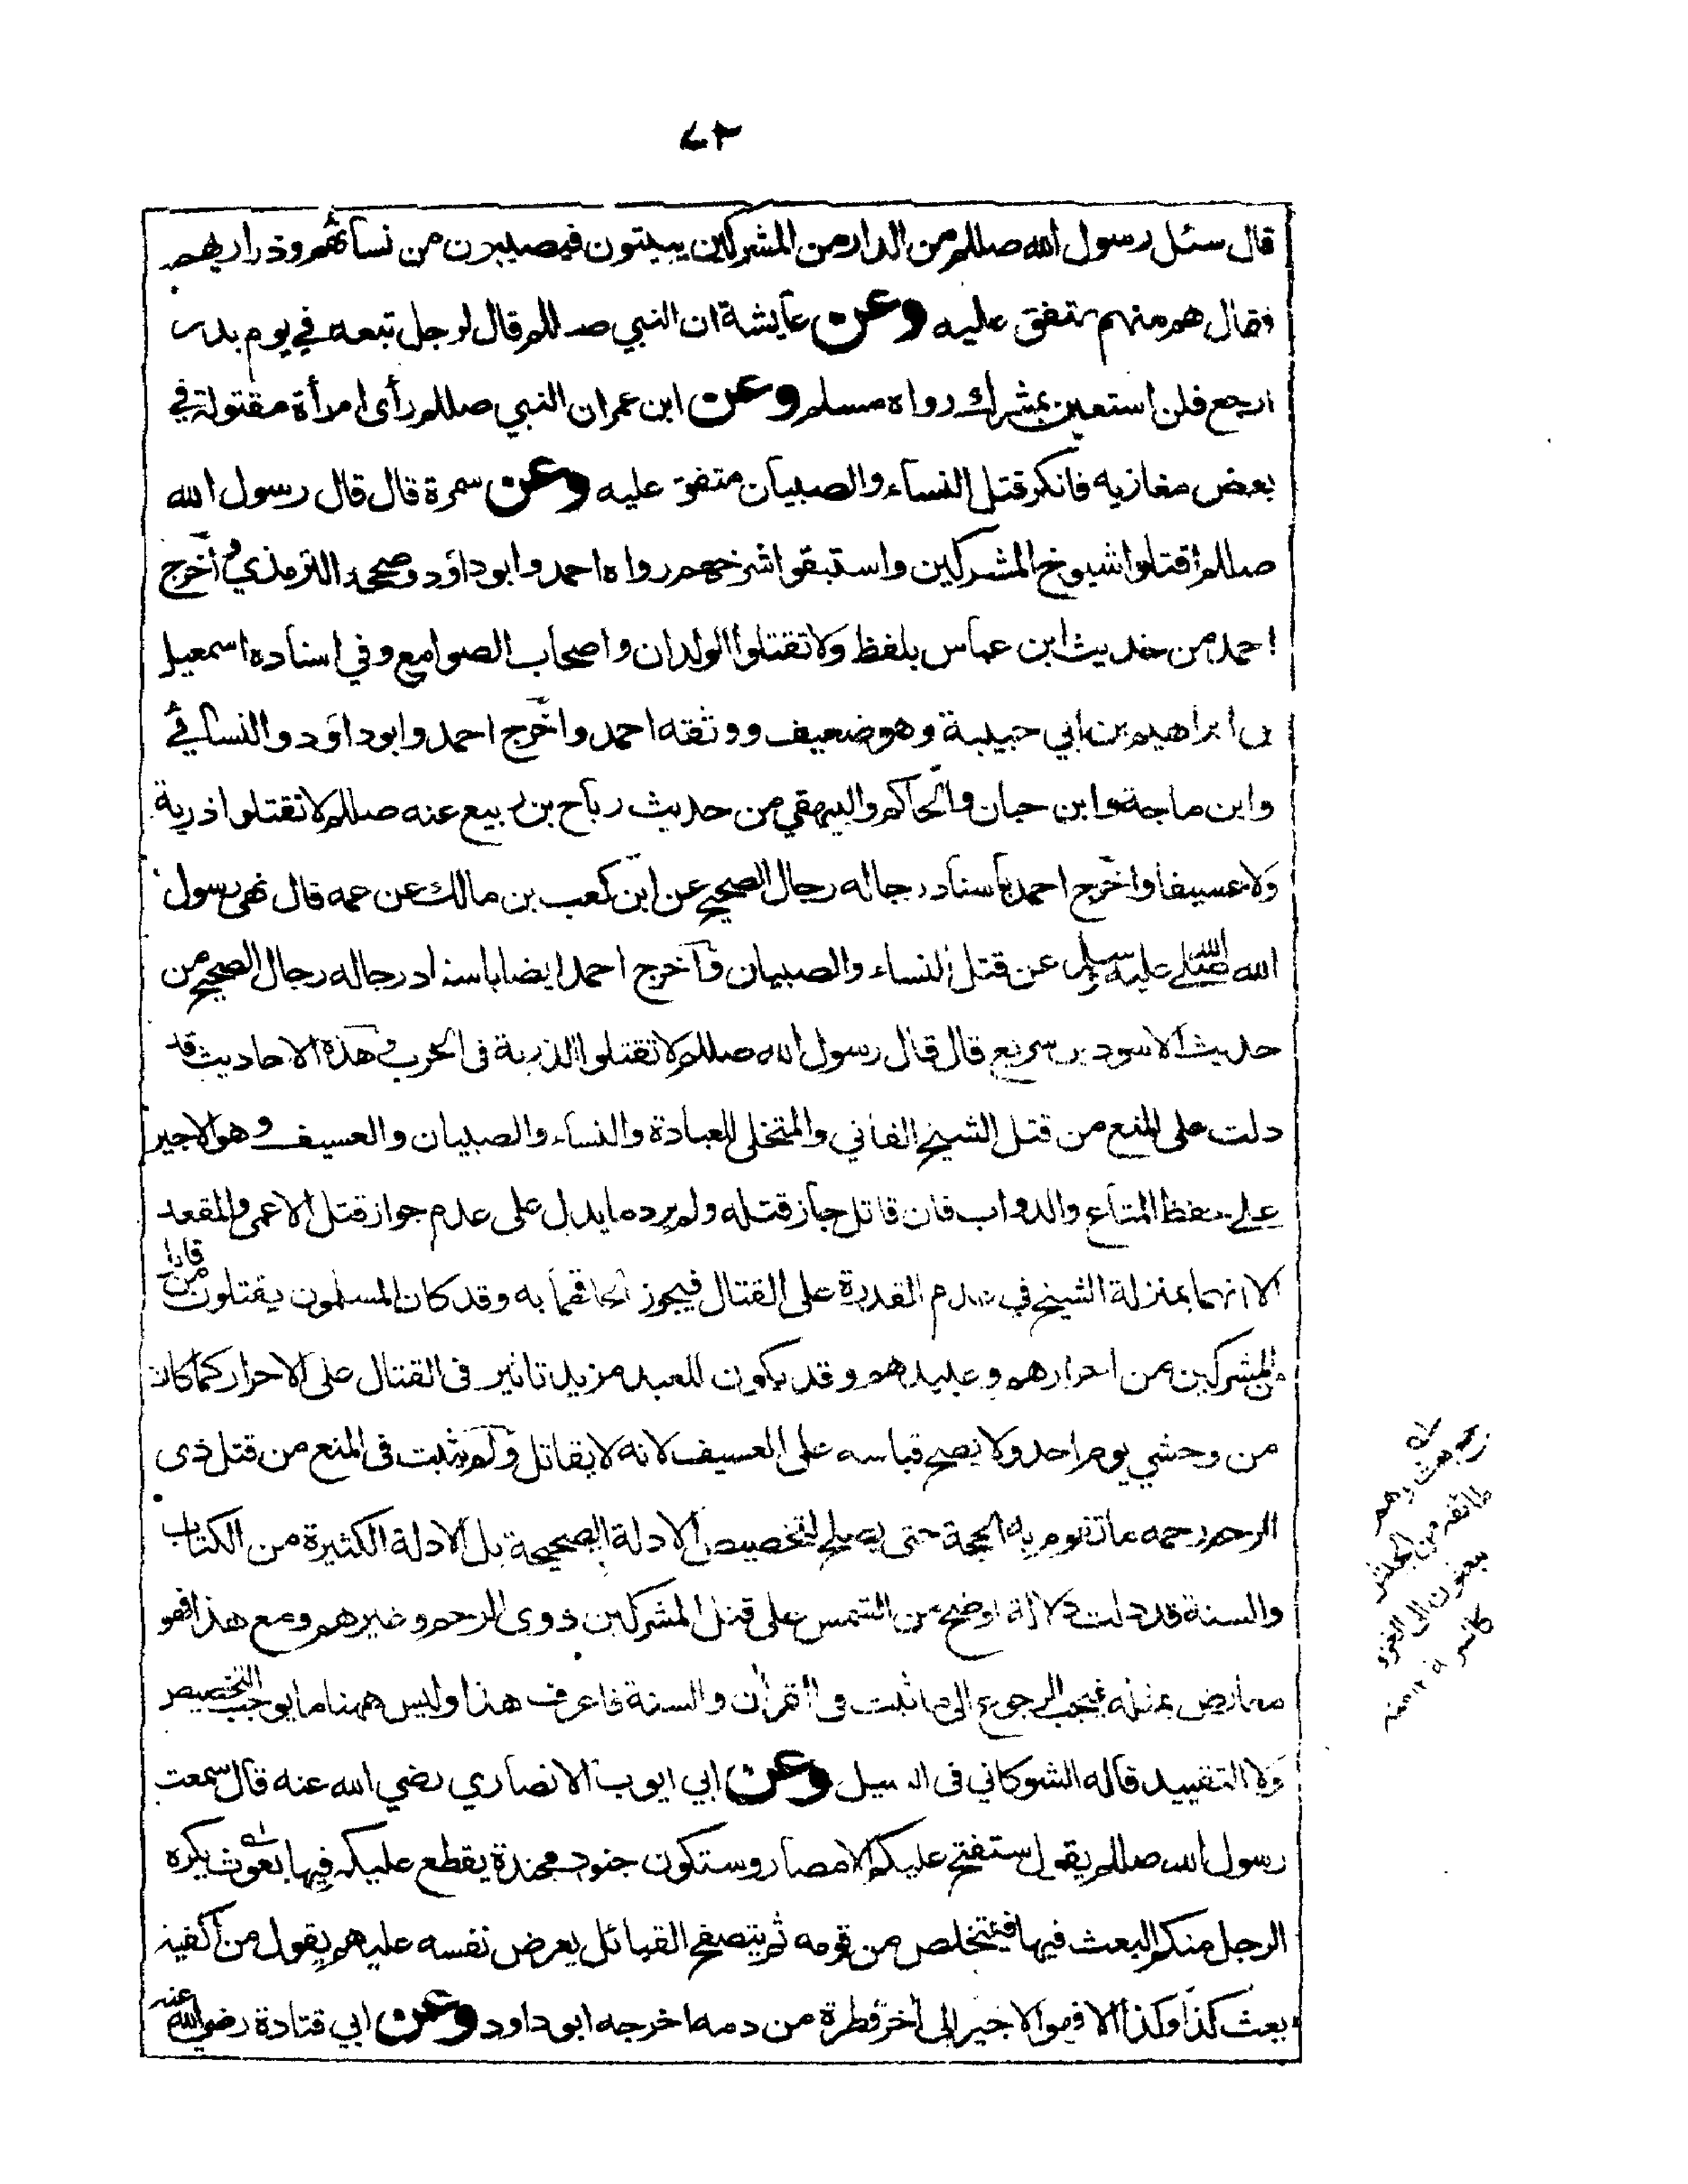 ٤٣
قال سئل رسول الله صللم من الدار من المشركين يبيتون فيصيبون من نسائهم وذراريهم
فقال هم منهم متفق عليه وعن عايشة ان النبي صللم قال لرجل تبعه في يوم بدر
ارجع فلن استعين بمشرك رواه مسلم وعن ابن عمر ان النبي صللم رأى امرأة مقتولة في
بعض مغازيه فانكر قتل النساء والصبيان متفق عليه وعن سمرة قال قال رسول الله
صللم اقتلوا شيوخ المشركين واستبقوا شرخهم رواه احمد وابو داؤد وصححه الترمذي وأخرج
احمد من حديث ابن عباس بلفظ ولا تقتلوا الولدان واصحاب الصوامع وفي اسناده اسمعيل
بن ابراهيم بن ابي حبيبة وهو ضعيف ووثقه احمد واخرج احمد وابو داؤد والنسائي
وابن ماجة وابن حبان والحاكم والبيهقي من حديث رباح بن ربيع عنه صللم لا تقتلوا ذرية
ولا عسيفا واخرج احمد باسناد رجاله رجال الصحيح عن ابن كعب بن مالك عن عمه قال نهى رسول
الله صلى الله عليه وسلم عن قتل النساء والصبيان وأخرج احمد ايضا باسناد رجاله رجال الصحيح من
حديث الاسود بن سريع قال قال رسول الله صللم لا تقتلوا الذرية فى الحرب وهذه الاحاديث قد
دلت على المنع من قتل الشيخ الفاني والمتخلى للعبادة والنساء والصبيان والعسيف وهو الاجير
على حفظ المتاع والدواب فان قاتل جاز قتله ولم يرد ما يدل على عدم جواز قتل الاعمى والمقعد
الا انهما بمنزلة الشيخ في عدم القدرة على القتال فيجوز الحاقهما به وقد كان المسلمون يقتلون من قاتل
من المشركين من احرارهم وعبيدهم وقد يكون للعبد مزيد تاثير فى القتال على الاحرار كما كان
من وحشي يوم احد ولا يصح قياسه على العسيف لانه لا يقاتل ولم يثبت فى المنع من قتل ذى
الرحم رحمه ما تقوم به الحجة حتى يصلح لتخصيص الادلة الصحيحة بل الادلة الكثيرة من الكتاب
والسنة قد دلت دلالة اوضح من الشمس على قتل المشركين ذوى الرحم وغيرهم ومع هذا فهو
معارض بمثله فيجب الرجوع الى ما ثبت فى القرآن والسنة فاعرف هذا وليس ههنا ما يوجب التخصيص
ولا التقييد قاله الشوكاني فى السيل وعن ابي ايوب الانصاري رضي الله عنه قال سمعت
رسول الله صللم يقول ستفتح عليكم الامصار وستكون جنود مجندة يقطع عليكم فيها بعوث يكره
الرجل منكم البعث فيها فيتخلص من قومه ثم يتصفح القبائل يعرض نفسه عليهم يقول من أكفيه
بعث كذا وكذا ألا وهو الاجير الى أخر قطرة من دمه اخرجه ابو داود وعن ابي قتادة رضي الله عنه
بعث وهم
طائفة من الجند
يبعثون الى الغزو